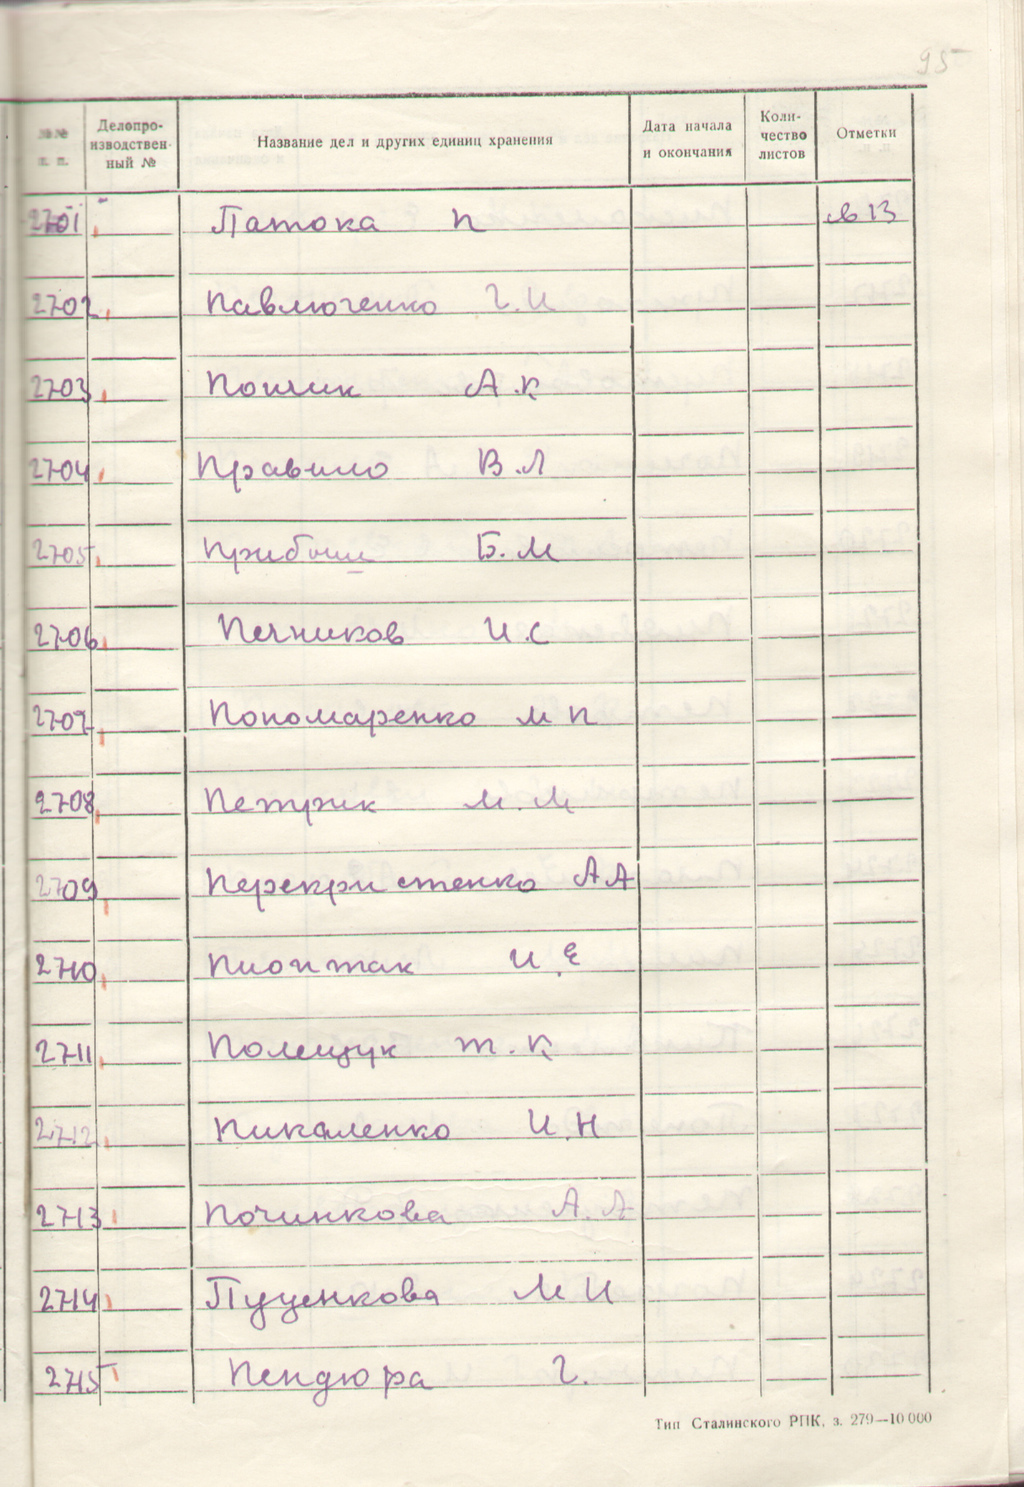 95
№№ п. п. Делопроизводственный № Название дел и других единиц хранения Дата начала и окончания Количество листов Отметки
2701 Патока П
2702 Павлюченко Г.И
2703 А.К
2704 Правило В.Л
2705 Б.М
2706 Печников И.С
2707 Пономаренко М П
2708 Петрик М.М
2709 Перекристенко А А
2710 И.Е
2711 Полещук Т.К
2712 Пикаленко И.Н
2713 Починкова А.А
2714 Пуценкова М И
2715 Пендюра Г.
Тип Сталинского РПК, з. 279—10 000